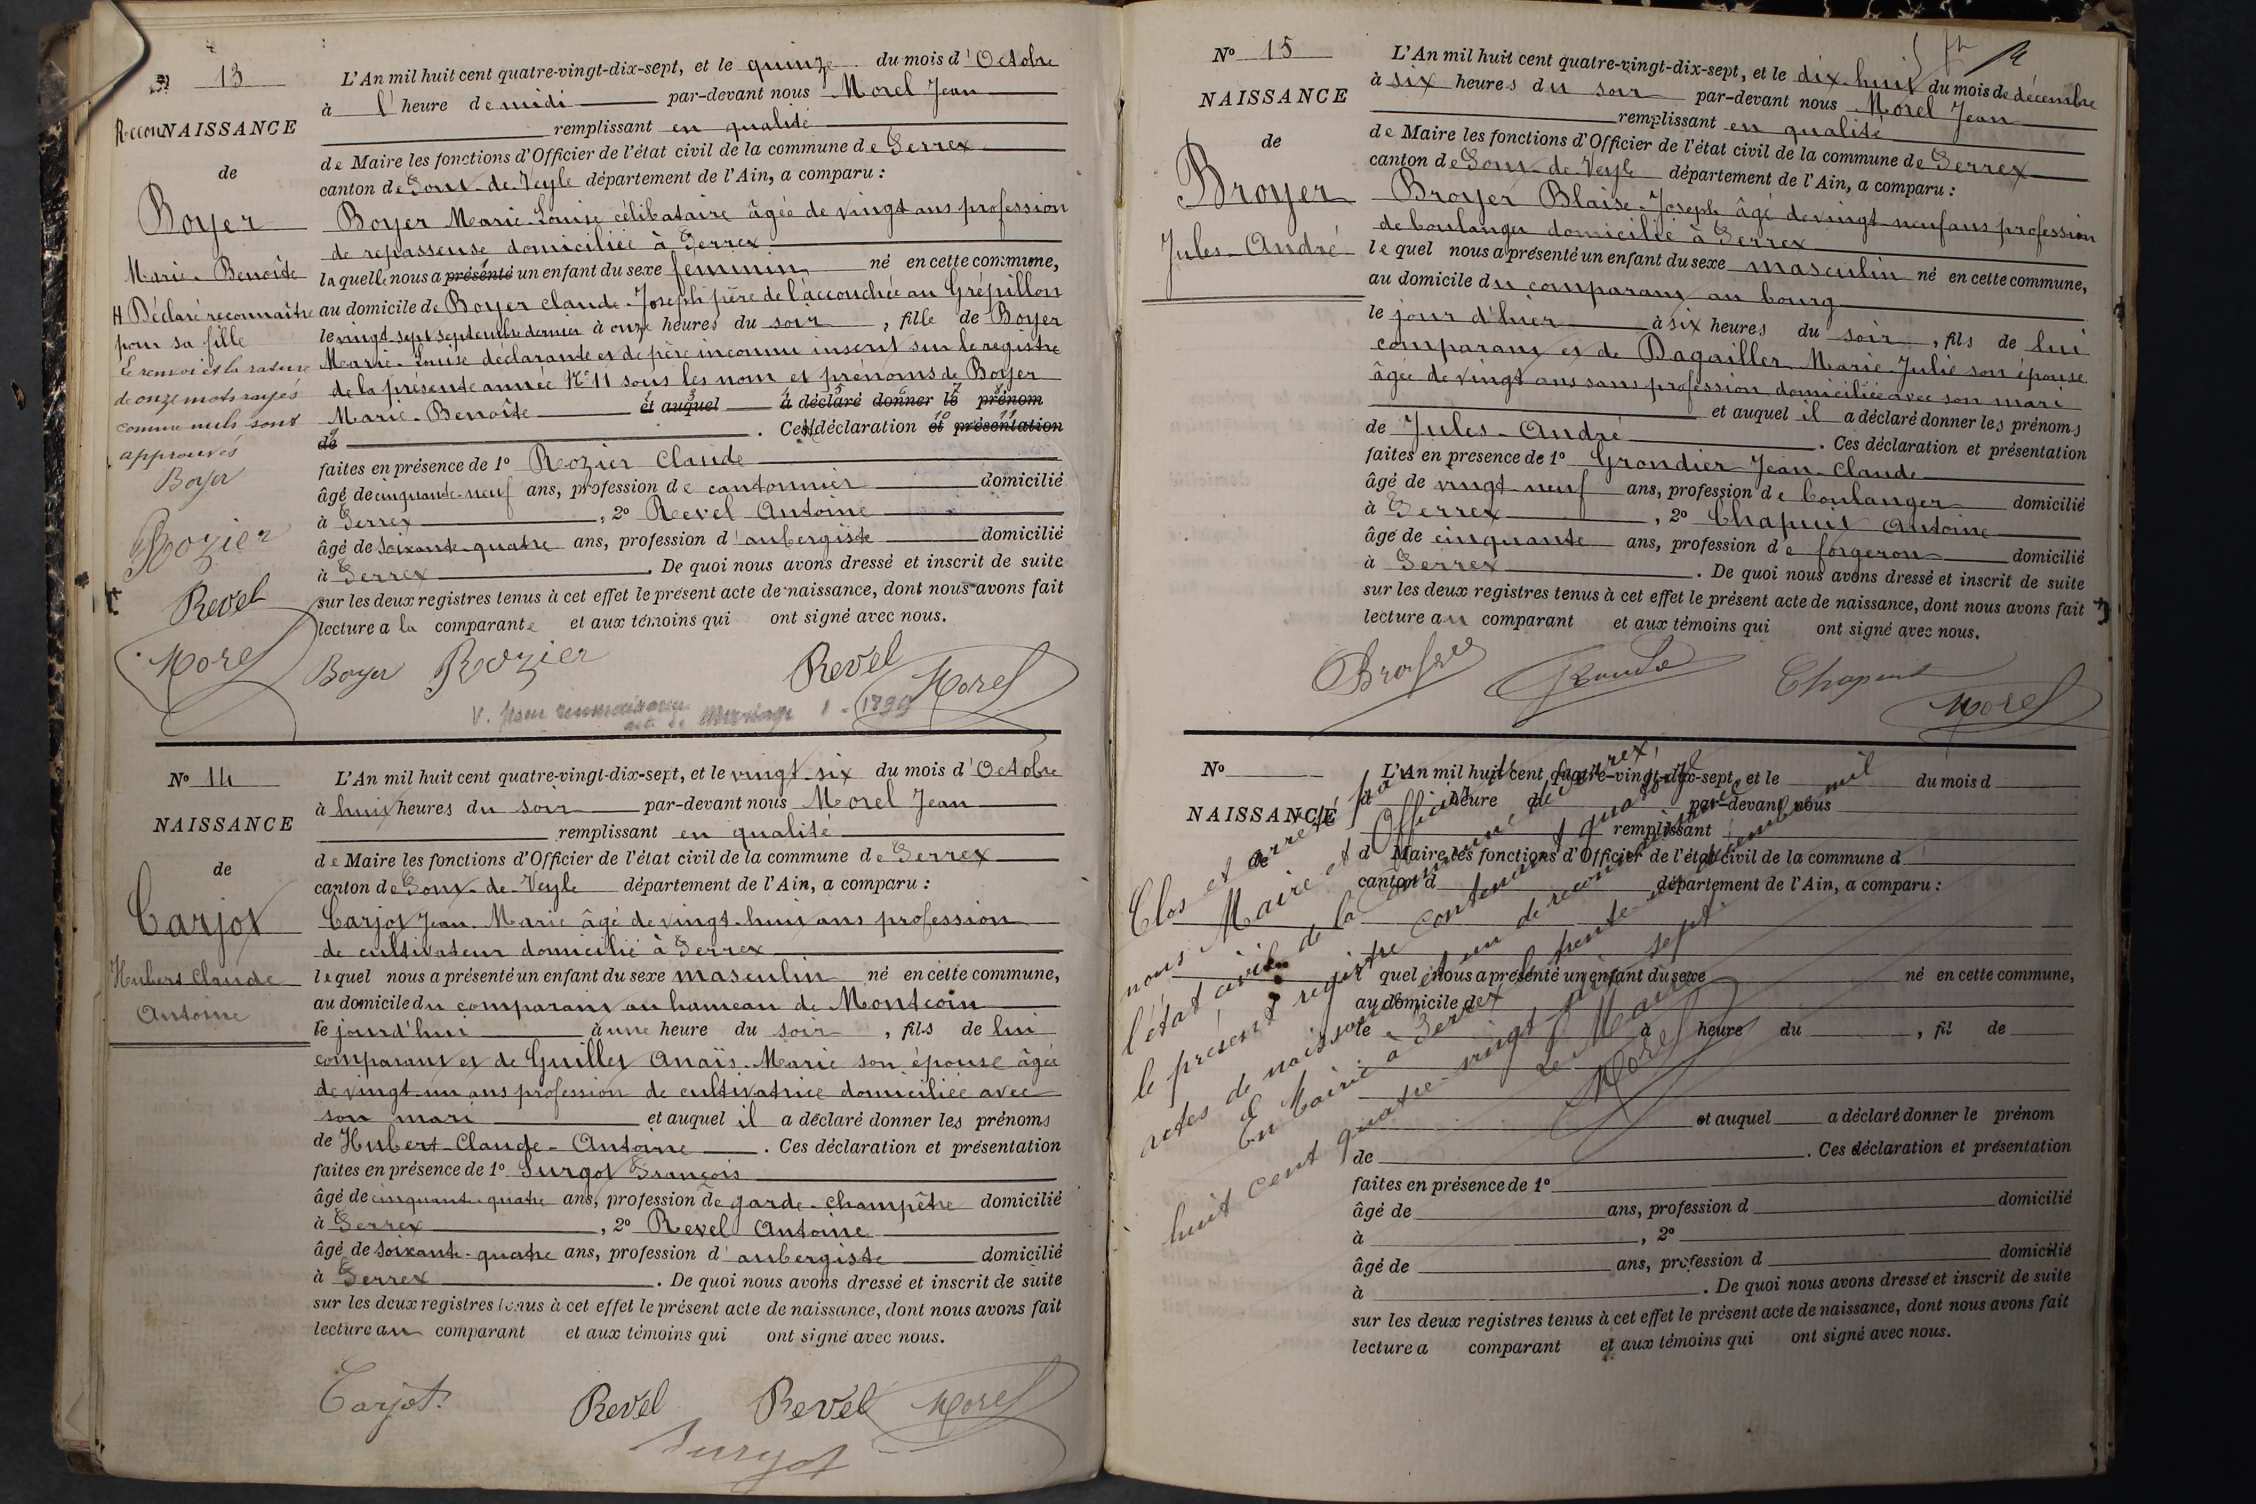 N° 13
ReconNAISSANCE
de
Boyer
Marie-Benoîte
H Déclaré reconnaître
pour sa fille
Le renvoi et la rature
de onze mots rayés
comme nuls sont
approuvés
Boyer
Rozier
Revel
Morel
L'An mil huit cent quatre-vingt-dix-sept, et le quinze du mois d'Octobre
à l'heure de midi par-devant nous Morel Jean
remplissant en qualité
de Maire les fonctions d'Officier de l'état civil de la commune de Perrex
canton de Pont-de-Veyle département de l'Ain, a comparu :
Boyer Marie-Louise célibataire âgée de vingt ans profession
de repasseuse domiciliée à Perrex
laquelle nous a présenté un enfant du sexe féminin né en cette commune,
au domicile de Boyer Claude-Joseph père de l'accouchée au Grépillon
le vingt sept septembre dernier à onze heures du soir, fille de Boyer
Marie-Louise déclarante et de père inconnu inscrit sur le registre
de la présente année N° 11 sous les nom et prénoms de Boyer
Marie-Benoîte et auquel a déclaré donner le prénom
de . Ces déclaration et présentation
faites en présence de 1° Rozier Claude
âgé de cinquante-neuf ans, profession de cantonnier domicilié
à Perrex, 2° Revel Antoine
âgé de soixante-quatre ans, profession d'aubergiste domicilié
à Perrex. De quoi nous avons dressé et inscrit de suite
sur les deux registres tenus à cet effet le présent acte de naissance, dont nous avons fait
lecture a la comparante et aux témoins qui ont signé avec nous.
Boyer Rozier Revel Morel
V. pour reconnaissance
acte de mariage 1 - 1899
N° 14
NAISSANCE
de
Carjot
Hubert Claude
Antoine
L'An mil huit cent quatre-vingt-dix-sept, et le vingt-six du mois d'Octobre
à huit heures du soir par-devant nous Morel Jean
remplissant en qualité
de Maire les fonctions d'Officier de l'état civil de la commune de Perrex
canton de Pont-de-Veyle département de l'Ain, a comparu :
Carjot Jean-Marie âgé de vingt-huit ans profession
de cultivateur domicilié à Perrex
lequel nous a présenté un enfant du sexe masculin né en cette commune,
au domicile du comparant au hameau de Montcoin
le jourd'hui à une heure du soir, fils de lui
comparant et de Guilley Anaïs-Marie son épouse âgée
de vingt-un ans profession de cultivatrice domiciliée avec
son mari et auquel il a déclaré donner les prénoms
de Hubert-Claude-Antoine. Ces déclaration et présentation
faites en présence de 1° Surgot François
âgé de cinquante-quatre ans, profession de garde-champêtre domicilié
à Perrex, 2° Revel Antoine
âgé de soixante-quatre ans, profession d'aubergiste domicilié
à Perrex. De quoi nous avons dressé et inscrit de suite
sur les deux registres tenus à cet effet le présent acte de naissance, dont nous avons fait
lecture au comparant et aux témoins qui ont signé avec nous.
Carjot Revel Revel Morel
Surgot
N° 15
NAISSANCE
de
Broyer
Jules-André
L'An mil huit cent quatre-vingt-dix-sept, et le dix-huit du mois de décembre
à six heures du soir par-devant nous Morel Jean
remplissant en qualité
de Maire les fonctions d'Officier de l'état civil de la commune de Perrex
canton de Pont-de-Veyle département de l'Ain, a comparu :
Broyer Blaise-Joseph âgé de vingt neuf ans profession
de boulanger domicilié à Perrex
lequel nous a présenté un enfant du sexe masculin né en cette commune,
au domicile du comparant au bourg
le jour d'hier à six heures du soir, fils de lui
comparant et de Dagailler Marie-Julie son épouse
âgée de vingt ans sans profession domiciliée avec son mari
et auquel il a déclaré donner les prénoms
de Jules-André. Ces déclaration et présentation
faites en présence de 1° Grondier Jean-Claude
âgé de vingt neuf ans, profession de boulanger domicilié
à Perrex, 2° Chapuit Antoine
âgé de cinquante ans, profession de forgeron domicilié
à Perrex. De quoi nous avons dressé et inscrit de suite
sur les deux registres tenus à cet effet le présent acte de naissance, dont nous avons fait
lecture au comparant et aux témoins qui ont signé avec nous.
Broyer Chapuit Morel
N°
NAISSANCE
de
L'An mil huit cent quatre-vingt-dix-sept, et le du mois d
à heure d par-devant nous
remplissant
d Maire les fonctions d'Officier de l'état civil de la commune d
canton d département de l'Ain, a comparu :
quel nous a présenté un enfant du sexe né en cette commune,
au domicile d
le à heure du , fil de
et auquel a déclaré donner le prénom
de . Ces déclaration et présentation
faites en présence de 1°
âgé de ans, profession d domicilié
à , 2°
âgé de ans, profession d domicilié
à . De quoi nous avons dressé et inscrit de suite
sur les deux registres tenus à cet effet le présent acte de naissance, dont nous avons fait
lecture a comparant et aux témoins qui ont signé avec nous.
Clos et arrêté par
nous Maire et Officier de
l'état civil de la commune de Perrex,
le présent registre contenant quatorze
actes de naissance et un de reconnaissance
En Mairie à Perrex le trente-et-un décembre mil
huit cent quatre-vingt-dix-sept.
Le Maire
Morel